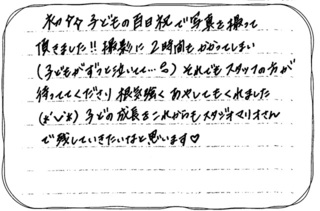 初めて子どもの百日祝で写真を撮って
頂きました!! 撮影に2時間もかかってしまい
(子どもがずっと泣いてて…💧) それでもスタッフの方が
待っててくださり 根気強く あやしてもくれました
(*^^*) 子どもの成長をこれからもスタジオマリオさん
で残していきたいなと思います♡